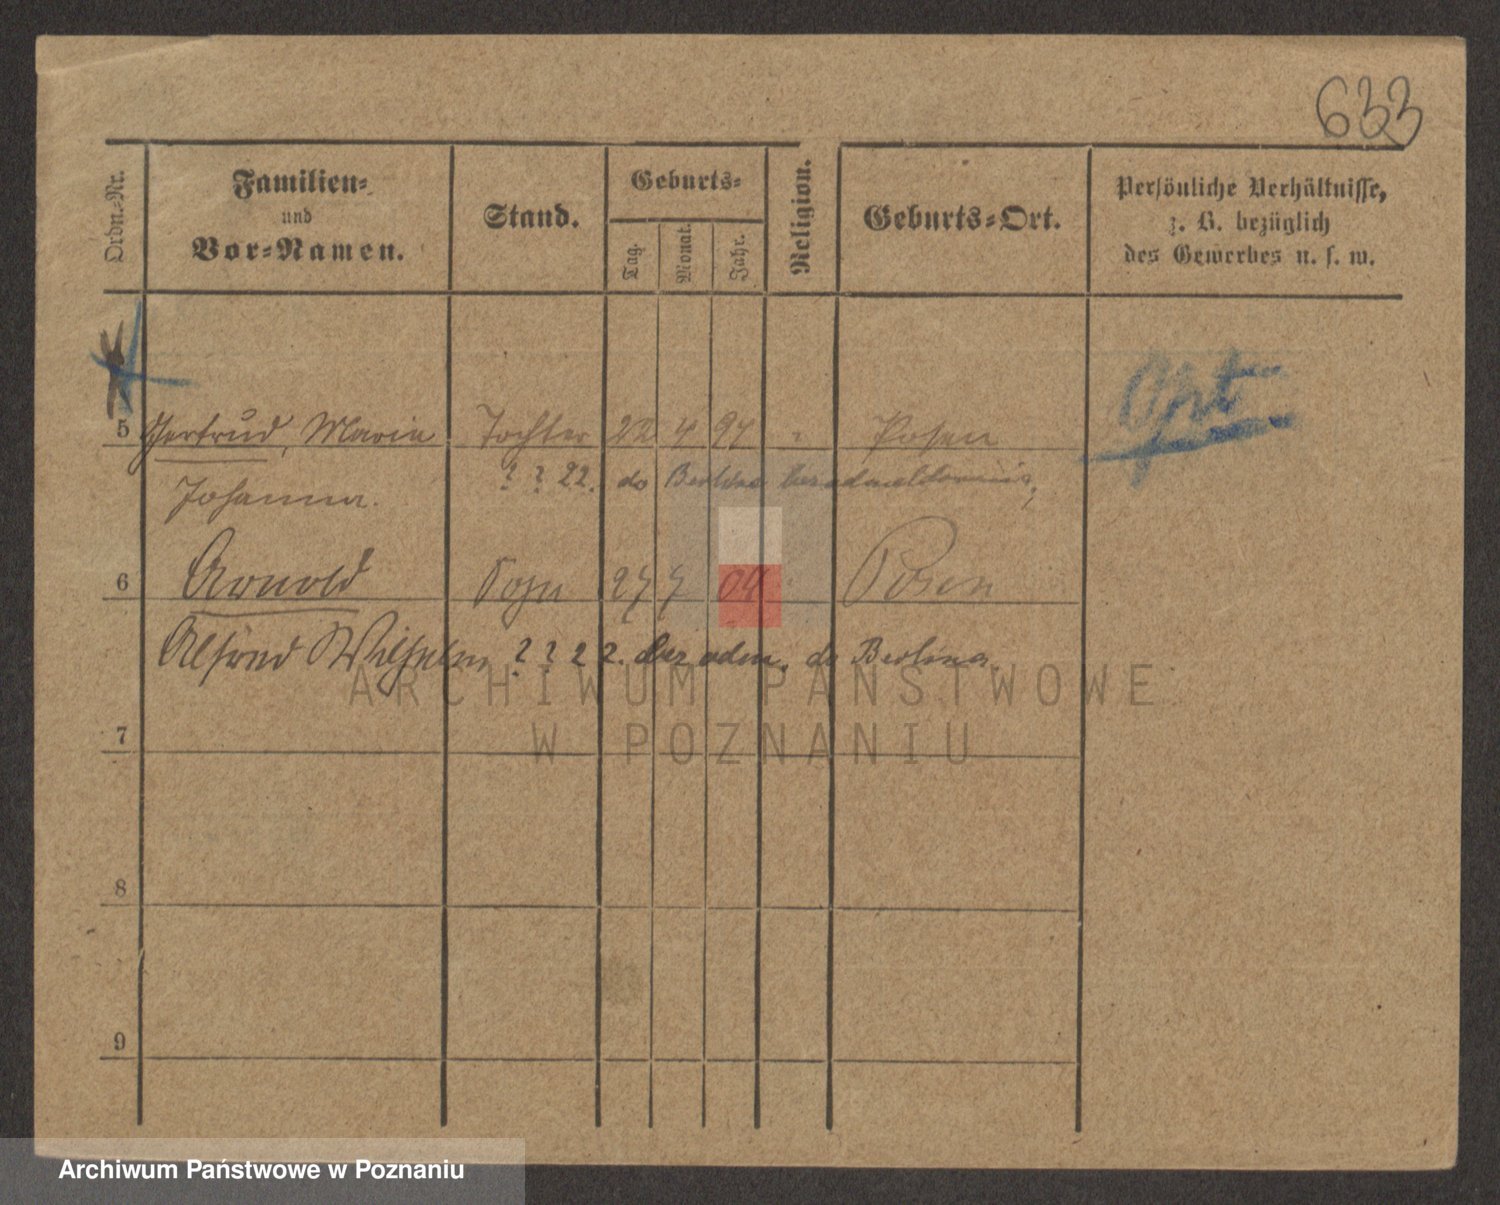 633
Ordn.-Nr.
Familien-
und
Vor-Namen.
Stand.
Geburts-
Tag.
Monat.
Jahr.
Religion.
Geburts-Ort.
Persönliche Verhältnisse,
z. B. bezüglich
des Gewerbes u. s. w.
Opt
5 Gertrud, Marie Tochter 22 4 97 " Posen
? ? 22. do Berlina bez odmeldowania,
Johanna.
6 Arnold Sohn 27 7 04 " Posen
Alfred Wilhelm ? ? 22. bez odm. do Berlina
ARCHIWUM PAŃSTWOWE
W POZNANIU
7
8
9
Archiwum Państwowe w Poznaniu